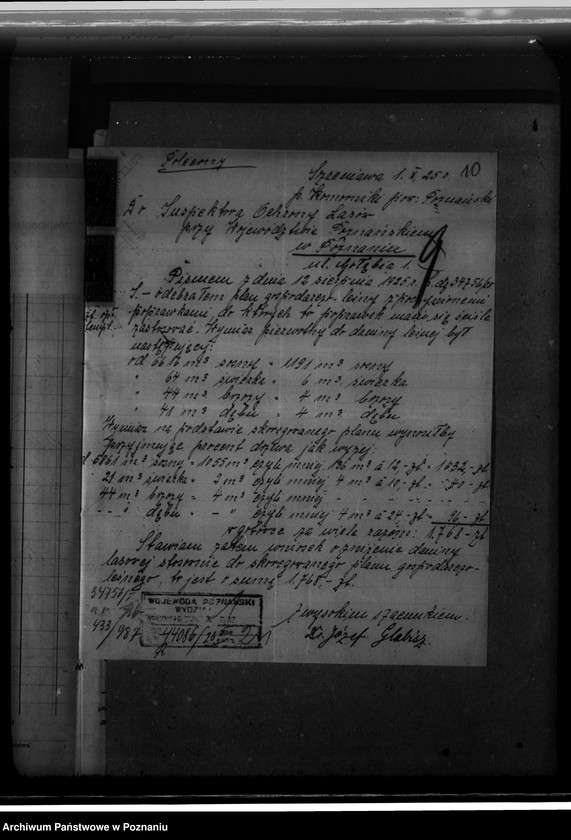 Polecony
10
Szreniawa 1. X. 25 r.
p. Komorniki pow. Poznański
Do Inspektora Ochrony Lasów
przy Województwie Poznańskiem
w Poznaniu
ul. Gołębia 1.
Pismem z dnia 12 sierpnia 1925 r. dz 34756/25
odebrałem plan gospodarczo-leśny z poczynionemi
poprawkami, do których to poprawek mam się ściśle
zastosować. Wymiar pierwotny do daniny leśnej był
następujący:
od 6616 m³ sosny = 1191 m³ sosny
" 64 m³ świerka = 6 m³ świerka
" 44 m³ brzozy = 4 m³ brzozy
" 41 m³ dębu = 4 m³ dębu
Wymiar na podstawie skorygowanego planu wynosiłby
przyjmując procent drzewa jak wyżej:
od 5861 m³ sosny = 1055 m³ czyli mniej 136 m³ à 12,- zł = 1632,- zł
21 m³ świerka = 2 m³ czyli mniej 4 m³ à 10,- zł = 40,- zł
44 m³ brzozy = 4 m³ czyli mniej - - - -
- - " dębu = - " czyli mniej 4 m³ à 24,- zł = 96,- zł
za wiele razem: 1.768,- zł
Stawiam zatem wniosek o zniżenie daniny
lasowej stosownie do skorygowanego planu gospodarczo-
leśnego, to jest o sumę 1.768,- zł.
34756/25
433/987
WOJEWODA POZNAŃSKI
44086/25
Z wysokiem szacunkiem
Dr. Józef Glabisz.
Archiwum Państwowe w Poznaniu